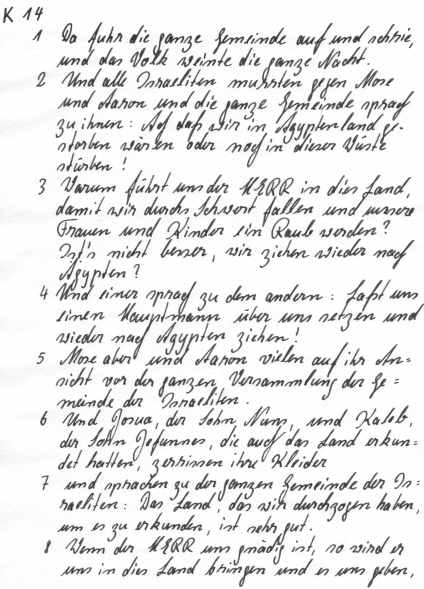 K 14
1 Da fuhr die ganze Gemeinde auf und schrie,
und das Volk weinte die ganze Nacht.
2 Und alle Israeliten murrten gegen Mose
und Aaron und die ganze Gemeinde sprach
zu ihnen: Ach daß wir in Ägyptenland ge-
storben wären oder noch in dieser Wüste
stürben!
3 Warum führt uns der HERR in dies Land,
damit wir durchs Schwert fallen und unsere
Frauen und Kinder ein Raub werden?
Ist's nicht besser, wir ziehen wieder nach
Ägypten?
4 Und einer sprach zu dem andern: Laßt uns
einen Hauptmann über uns setzen und
wieder nach Ägypten ziehen!
5 Mose aber und Aaron vielen auf ihr An-
sicht vor der ganzen Versammlung der Ge=
meinde der Israeliten.
6 Und Josua, der Sohn Nuns, und Kaleb,
der Sohn Jefunnes, die auch das Land erkun=
det hatten, zerrissen ihre Kleider
7 und sprachen zu der ganzen Gemeinde der Is=
raeliten: Das Land, das wir durchzogen haben,
um es zu erkunden, ist sehr gut.
8 Wenn der HERR uns gnädig ist, so wird er
uns in dies Land bringen und es uns geben,